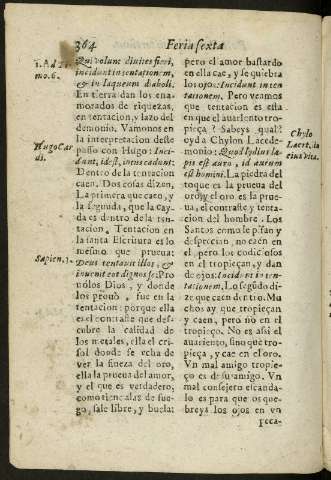 364
Feria sexta
1. Ad Ti-
mo. 6.
Qui volunt divites fieri,
incidunt in tentationem,
& in laqueum diaboli.
En tierra dan los ena-
morados de riquezas,
en tentacion, y lazo del
demonio. Vamonos en
la interpretacion deste
Hugo Car
di.
passo con Hugo: Inci-
dunt, id est, intus cadunt:
Dentro de la tentacion
caen. Dos cosas dizen,
La primera que caen, y
la segunda, que la cay-
da es dentro de la ten-
tacion. Tentacion en
la santa Escritura es lo
mesmo que prueua:
Sapien. 3.
Deus tentauit illos, &
inuenit eos dignos se: Pro
uòlos Dios, y donde
los prouò, fue en la
tentacion: porque ella
es el contraste que des-
cubre la calidad de
los metales, ella el cri-
sol donde se echa de
ver la fineza del oro,
ella la prueua del amor,
y el que es verdadero,
como tiene alas de fue-
go, sale libre, y buela:
pero el amor bastardo
en ella cae, y se quiebra
los ojos: Incidunt in ten
tationem. Pero veamos
que tentacion es esta
en que el auariento tro-
pieça? Sabeys qual?
Chylo
Laert. in
eius vita.
oyd a Chylon Lacede-
monio: Quod lydius la-
pis est auro, id aurum
est homini. La piedra del
toque es la prueua del
oro, y el oro es la prue-
ua, el contraste, y tenta-
cion del hombre. Los
Santos como le pisan y
desprecian, no caen en
el, pero los codiciosos
en el tropieçan, y dan
de ojos: Incidunt in ten-
tationem. Lo segũdo di-
ze que caen dentro. Mu
chos ay que tropieçan
y caen, pero nò en el
tropieço. No es assi el
auariento, sino que tro-
pieça, y cae en el oro.
Vn mal amigo tropie-
ço es de su amigo. Vn
mal consejero escanda-
lo es para que os que-
breys los ojos en vn
peca-